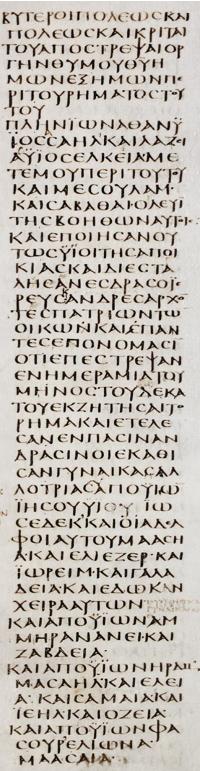 ΚΥΤΕΡΟΙΠΟΛΕΩϹΚΑΙ
ΠΟΛΕΩϹΚΑΙΚΡΙΤΑΙ
ΤΟΥΑΠΟϹΤΡΕΨΑΙΟΡ
ΓΗΝΘΥΜΟΥΘΥΗ
ΜΩΝΕΞΗΜΩΝΠΕ
ΡΙΤΟΥΡΗΜΑΤΟϹΤΟΥ
ΤΟΥ
ΠΛΗΝΙΩΝΑΘΑΝΫ
ΙΟϹϹΑΗΛΚΑΙΛΑΖΙ
ΑΫΙΟϹΕΛΚΕΙΑΜΕ
ΤΕΜΟΥΠΕΡΙΤΟΥΤΟΥ
ΚΑΙΜΕϹΟΥΛΑΜ·
ΚΑΙϹΑΒΑΘΑΙΟΛΕΥΙ
ΤΗϹΒΟΗΘΩΝΑΥΤΟΙϹ
ΚΑΙΕΠΟΙΗϹΑΝΟΥ
ΤΩϹΫΙΟΙΤΗϹΑΠΟΙ
ΚΙΑϹΚΑΙΔΙΕϹΤΑ
ΛΗϹΑΝΕϹΔΡΑϹΟΪΕ
ΡΕΥϹΑΝΔΡΕϹΑΡΧΟ
ΤΕϹΠΑΤΡΙΩΝΤΩ
ΟΙΚΩΝΚΑΙΕΠΑΝ
ΤΕϹΕΠΟΝΟΜΑϹΙ
ΟΤΙΕΠΕϹΤΡΕΨΑΝ
ΕΝΗΜΕΡΑΜΙΑΤΟΥ
ΜΗΝΟϹΤΟΥΔΕΚΑ
ΤΟΥΕΚΖΗΤΗϹΑΙΤΟ
ΡΗΜΑΚΑΙΕΤΕΛΕ
ϹΑΝΕΝΠΑϹΙΝΑΝ
ΔΡΑϹΙΝΟΙΕΚΑΘΙ
ϹΑΝΓΥΝΑΙΚΑϹΑΛ
ΛΟΤΡΙΑϹΑΠΟΫΙΩ
ΪΗϹΟΥΥΙΟΥΙΩ
ϹΕΔΕΚ·ΚΑΙΟΙΑΔΕΛ
ΦΟΙΑΥΤΟΥΜΑΑϹΗ
Α·ΚΑΙΕΛΙΕΖΕΡ·ΚΑΙ
ΪΩΡΕΙΜ·ΚΑΙΓΑΔΑ
ΔΕΙΑ·ΚΑΙΕΔΩΚΑΝ
ΧΕΙΡΑΑΥΤΩΝ
ΚΑΙΑΠΟΫΙΩΝΑΜ
ΜΗΡΑΝΑΝΕΙ·ΚΑΙ
ΖΑΒΔΕΙΑ·
ΚΑΙΑΠΟΫΙΩΝΗΡΑΜ·
ΜΑϹΑΗΛ·ΚΑΙΕΛΕΙ
Α·ΚΑΙϹΑΜΑΙΑΚΑΙ
ΪΕΗΛ·ΚΑΙΟΖΕΙΑ·
ΚΑΙΑΠΟΫΙΩΝΦΑ
ϹΟΥΡΕΛΙΩΝΑ·
ΜΑΑϹΑΙΑ·